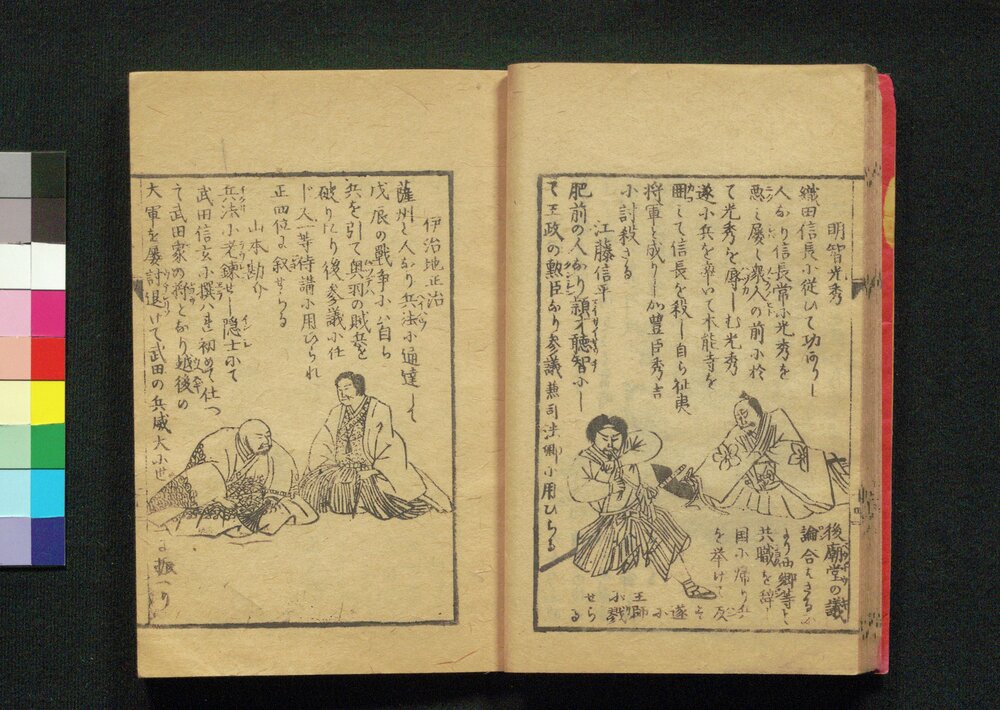 明智光秀
織田信長小從ひて功あり
人なり信長常小光秀を
悪し屡し衆人の前小於
て光秀を辱しむ光秀
遂小兵を率いて本能寺を
囲して信長を殺し自ら征夷
将軍と成りしが豊臣秀吉
小討殺さる
江藤信平
肥前の人なり頴才聴智小し
て王政の勲臣なり参議兼司法卿小用ひらる
後廟堂の議
論合はざる
より西郷等と
共職を辞し
国小帰り兵
を挙げて反
遂小
王師
小戮
せら
る
伊治地正治
薩州の人なり兵法小通達し
戊辰の戰爭小ハ自ら
兵を引て奥羽の賊兵を
破りたり後参議小任
じ又一等侍講小用ひられ
正四位に叙せらる
山本勘介
兵法小老錬せし隠士小て
武田信玄小撰バれ初めて仕へ
て武田家の将となり越後の
大軍を屡討退けて武田の兵威大小世
に振へり